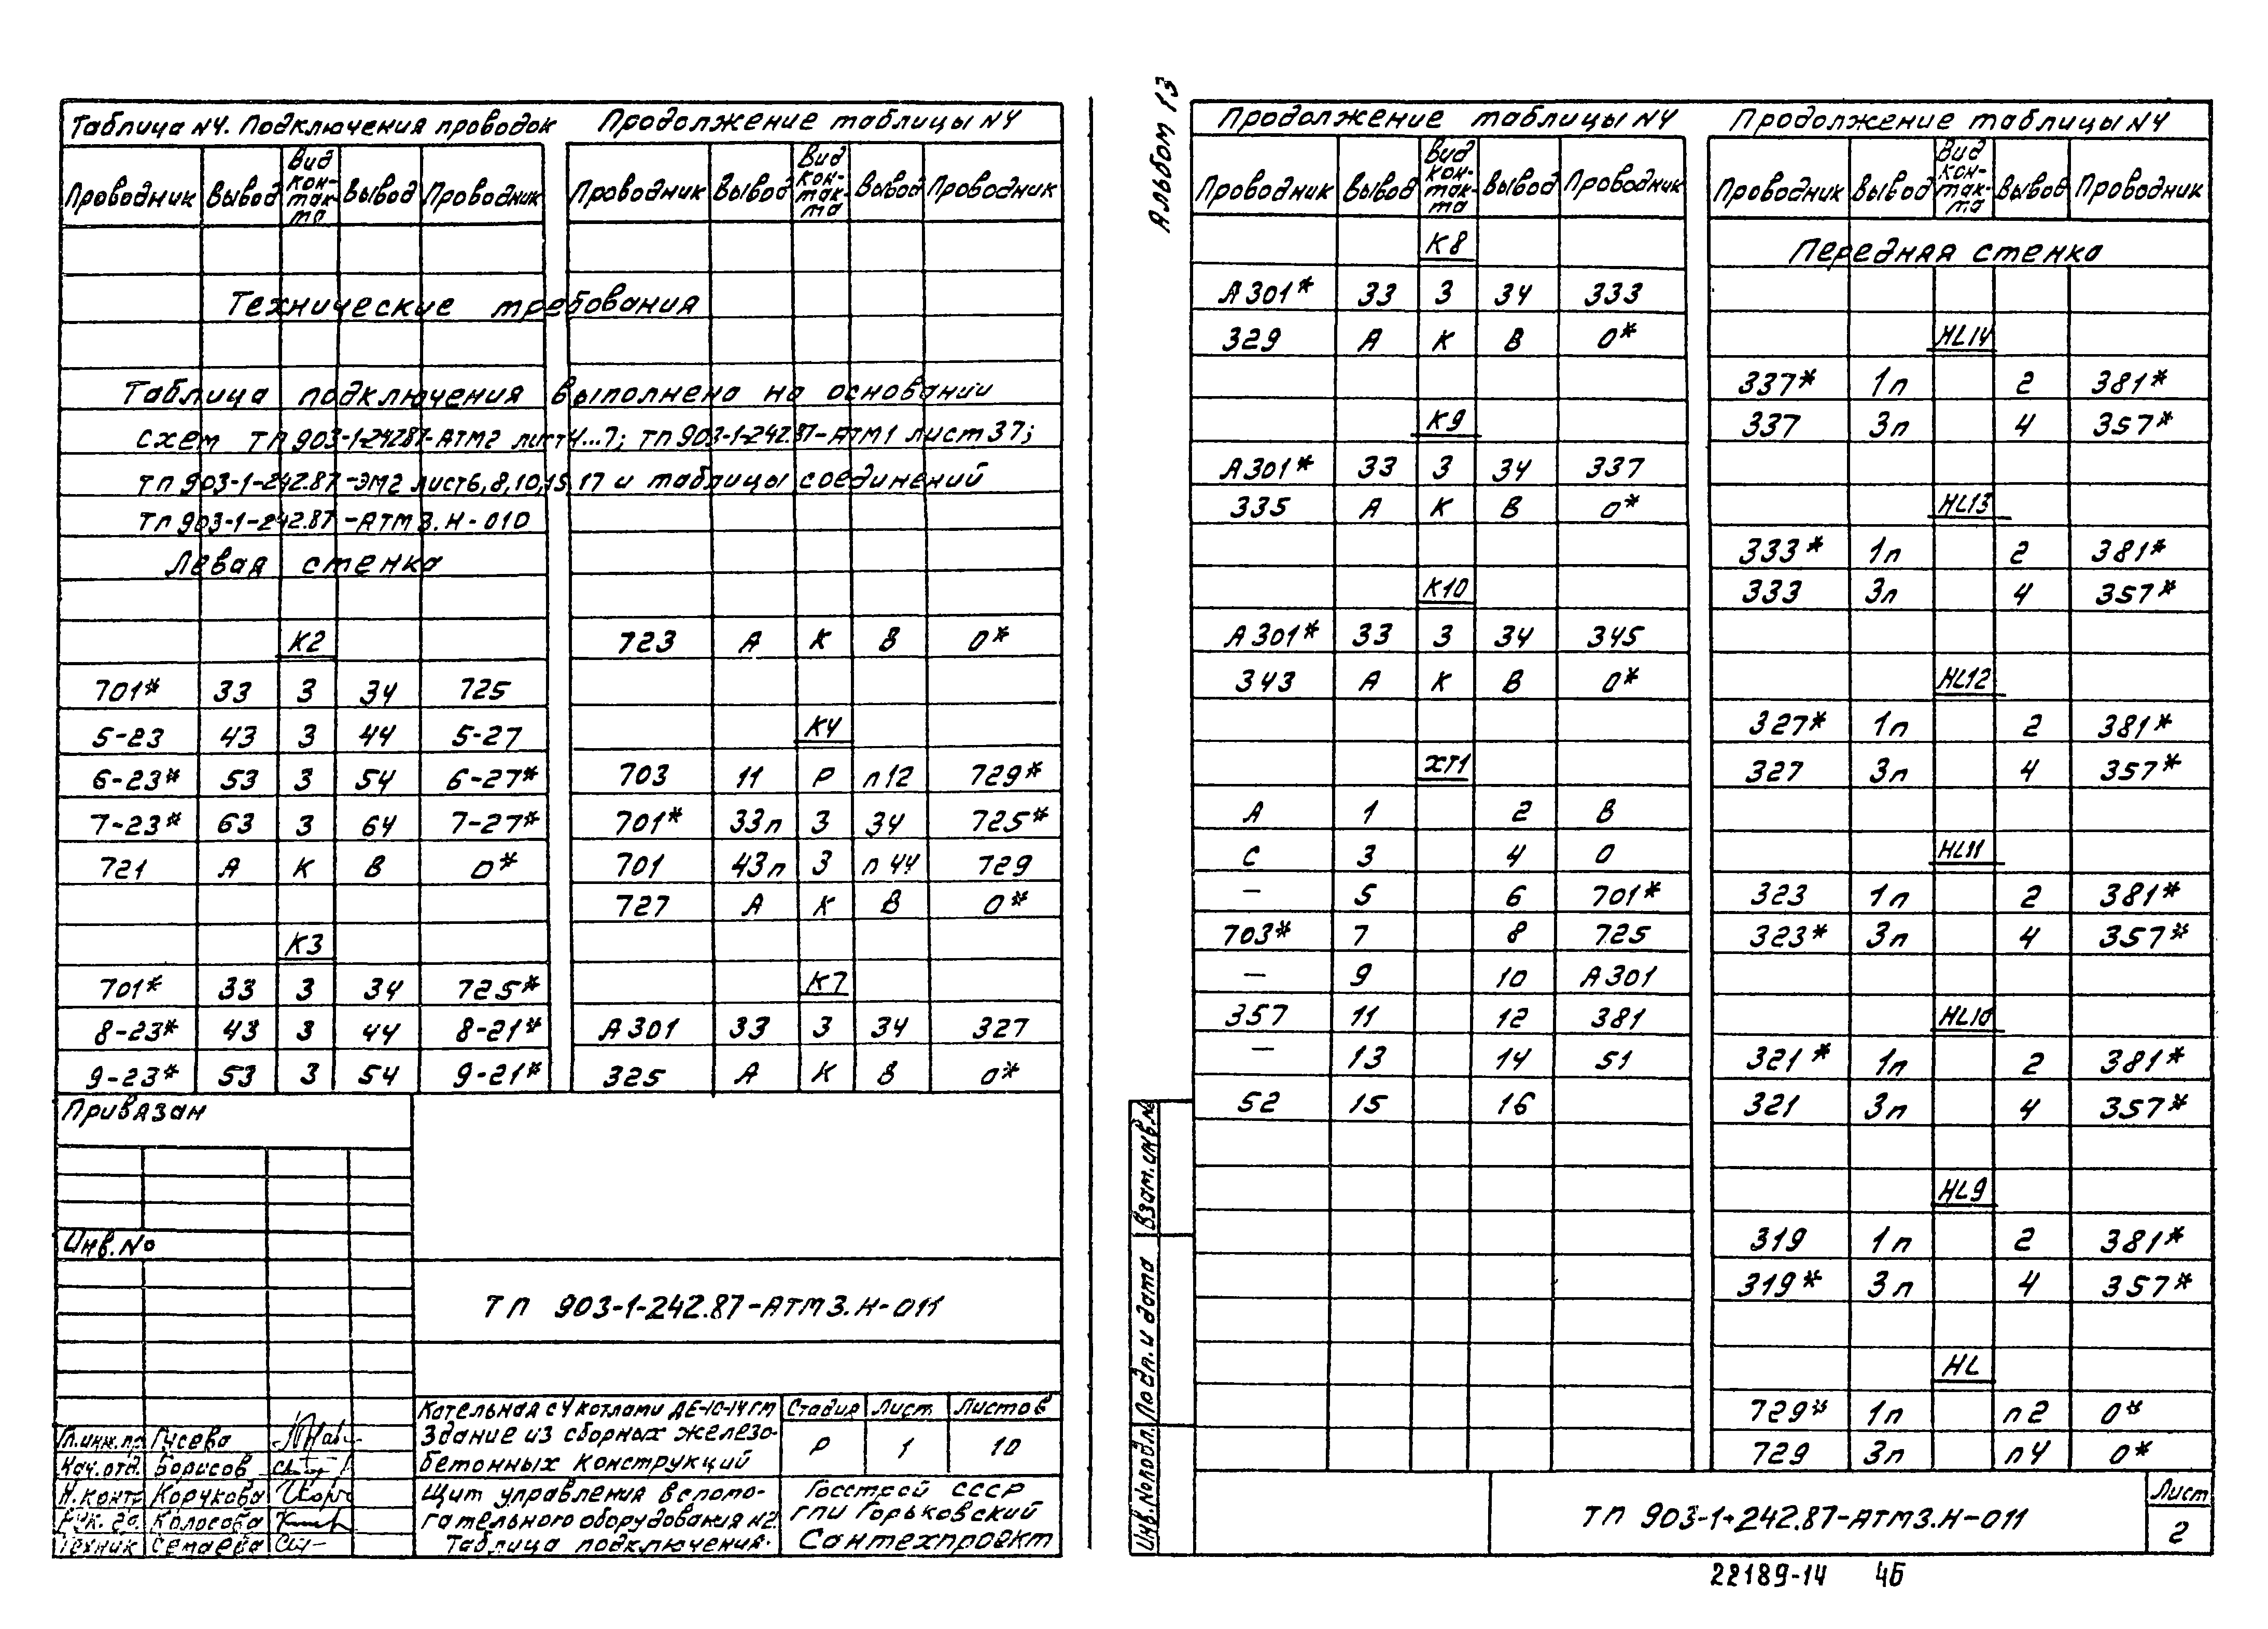 Таблица N4. Подключения проводок
Проводник Вывод Вид кон-так-та Вывод Проводник
Продолжение таблицы N4
Проводник Вывод Вид кон-так-та Вывод Проводник
Технические требования
Таблица подключения выполнена на основании
схем ТП 903-1-242.87-АТМ2 лист 4...7; ТП 903-1-242.87-АТМ1 лист 37;
ТП 903-1-242.87-ЭМ2 лист 6,8,10,15,17 и таблицы соединений
ТП 903-1-242.87-АТМ3.Н-010
Левая стенка
К2
701* 33 З 34 725
5-23 43 З 44 5-27
6-23* 53 З 54 6-27*
7-23* 63 З 64 7-27*
721 А К В 0*
К3
701* 33 З 34 725*
8-23* 43 З 44 8-21*
9-23* 53 З 54 9-21*
723 А К В 0*
К4
703 11 Р п12 729*
701* 33п З 34 725*
701 43п З п44 729
727 А К В 0*
К7
А301 33 З 34 327
325 А К В 0*
Привязан
Инв.No
ТП 903-1-242.87-АТМ3.Н-011
Гл.инж.пр Гусева
Нач.отд. Борисов
Н.контр Корчкова
Рук. гр. Колосова
Техник Семаева
Котельная с 4 котлами ДЕ-10-14ГМ
Здание из сборных железо-
бетонных конструкций
Стадия Лист Листов
Р 1 10
Щит управления вспомо-
гательного оборудования N2.
Таблица подключения.
Госстрой СССР
ГПИ Горьковский
Сантехпроект
Альбом 13
Продолжение таблицы N4
Проводник Вывод Вид кон-так-та Вывод Проводник
К8
А301* 33 З 34 333
329 А К В 0*
К9
А301* 33 З 34 337
335 А К В 0*
К10
А301* 33 З 34 345
343 А К В 0*
ХТ1
А 1 2 В
С 3 4 0
— 5 6 701*
703* 7 8 725
— 9 10 А301
357 11 12 381
— 13 14 51
52 15 16
Продолжение таблицы N4
Проводник Вывод Вид кон-так-та Вывод Проводник
Передняя стенка
HL14
337* 1п 2 381*
337 3п 4 357*
HL13
333* 1п 2 381*
333 3п 4 357*
HL12
327* 1п 2 381*
327 3п 4 357*
HL11
323 1п 2 381*
323* 3п 4 357*
HL10
321* 1п 2 381*
321 3п 4 357*
HL9
319 1п 2 381*
319* 3п 4 357*
HL
729* 1п п2 0*
729 3п п4 0*
Взам.инв.No
Подп. и дата
Инв.Noподл.
ТП 903-1-242.87-АТМ3.Н-011
Лист
2
22189-14 46